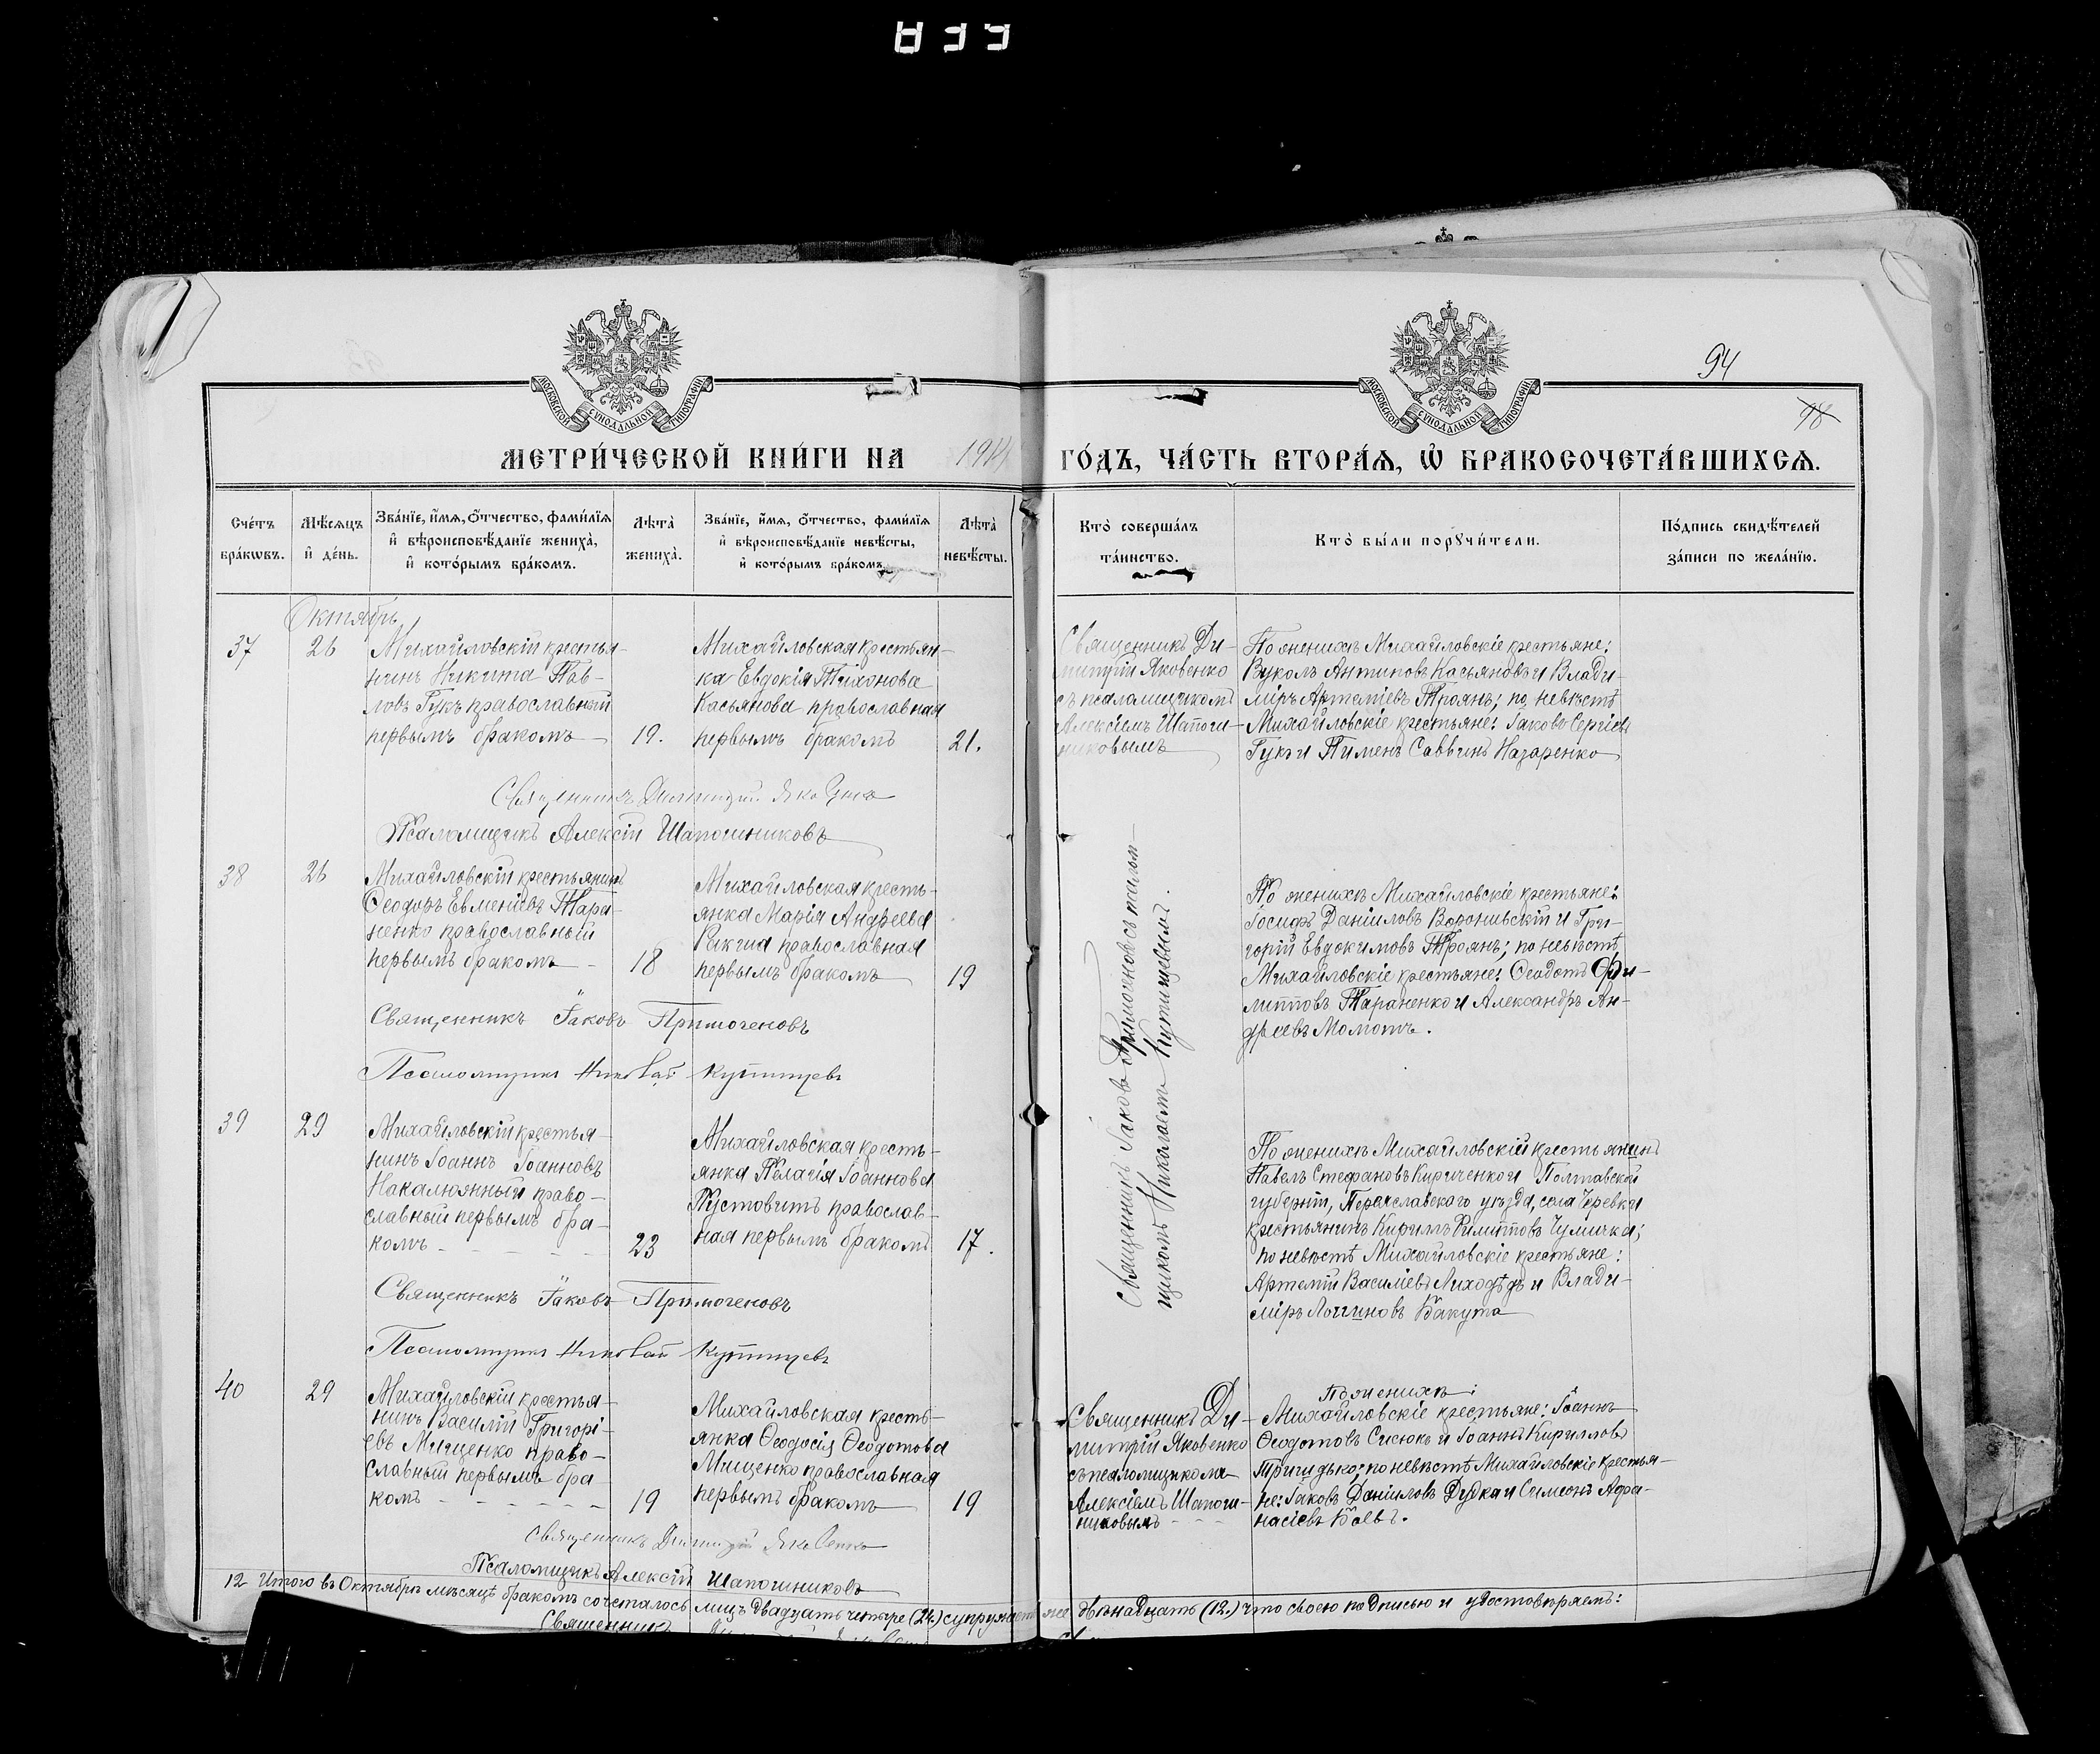 94
98
МОСКОВСКОЙ СѴНОДАЛЬНОЙ ТИПОГРАФІИ
МОСКОВСКОЙ СѴНОДАЛЬНОЙ ТИПОГРАФІИ
МЕТРИ́ЧЕСКОЙ КНИ́ГИ НА 1914 ГО́ДЪ, ЧА́СТЬ ВТОРА́Ѧ, Ѡ҆ БРАКОСОЧЕТА́ВШИХСѦ.
Сче́тъ
бра́кѡвъ.
Мѣ́сѧцъ
и҆ де́нь.
Зва́нїе, и҆́мѧ, ѻ҆́тчество, фами́лїѧ
и҆ вѣроисповѣ́данїе жениха̀,
и҆ кото́рымъ бра́комъ.
Лѣта̀
жениха̀.
Зва́нїе, и҆́мѧ, ѻ҆́тчество, фами́лїѧ
и҆ вѣроисповѣ́данїе невѣ́сты,
и҆ кото́рымъ бра́комъ.
Лѣта̀
невѣ́сты.
Кто̀ соверша́лъ
та́инство.
Кто̀ бы́ли порꙋчи́тели.
По́дпись свидѣ́телей
за́писи по жела́нїю.
Октябрь
37
26
Михайловскій крестья-
нинъ Никита Пав-
ловъ Гукъ православный
первымъ бракомъ
19.
Михайловская крестьян-
ка Евдокія Тихонова
Касьянова православная
первымъ бракомъ
21.
Священникъ Ди-
митрій Яковенко
съ псаломщикомъ
Алексіемъ Шапош-
никовымъ
По женихѣ Михайловскіе крестьяне:
Вуколъ Антиповъ Касьяновъ и Влади-
міръ Артеміевъ Троянъ; по невѣстѣ
Михайловскіе крестьяне: Іаковъ Сергіевъ
Гукъ и Пименъ Саввинъ Назаренко
Священникъ Димитрій Яковенко
Псаломщикъ Алексій Шапошниковъ
38
26
Михайловскій крестьянинъ
Ѳеодоръ Евменіевъ Тара-
ненко православный
первымъ бракомъ
18
Михайловская кресть-
янка Марія Андреева
православная
первымъ бракомъ
19
Священникъ Іаковъ Примогеновъ съ псалом-
щикомъ Николаемъ Купищевымъ.
По женихѣ Михайловскіе крестьяне:
Іосифъ Даніиловъ и Гри-
горій Евдокимовъ Троянъ; по невѣстѣ
Михайловскіе крестьяне: Ѳеодотъ Фи-
липповъ Тараненко и Александръ Ан-
дреевъ Момотъ.
Священникъ Іаковъ Примогеновъ
Псаломщикъ Николай Купищевъ
39
29
Михайловскій крестья-
нинъ Іоаннъ Іоанновъ
Накалюжный право-
славный первымъ бра-
комъ
23
Михайловская кресть-
янка Пелагія Іоаннова
Пустовитъ православ-
ная первымъ бракомъ
17.
По женихѣ Михайловскій крестьянинъ
Павелъ Стефановъ Кириченко и Полтавской
губерніи, Переяславского уѣзда, села
крестьянинъ Кириллъ Филипповъ Чумичка;
по невѣстѣ Михайловскіе крестьяне:
Артемій Василіевъ Лиходѣдъ и Влади-
міръ Логгиновъ Бакута
Священникъ Іаковъ Примогеновъ
Псаломщикъ Николай Купищевъ
40
29
Михайловскій крестья-
нинъ Василій Григорі-
евъ Мищенко право-
славный первымъ бра
комъ
19
Михайловская кресть-
янка Ѳеодосія Ѳеодотова
Мищенко православная
первымъ бракомъ
19
Священникъ Ди-
митрій Яковенко
съ псаломщикомъ
Алексіемъ Шапош-
никовымъ
По женихѣ:
Михайловскіе крестьяне: Іоаннъ
Ѳеодотовъ Сисюкъ и Іоаннъ Кирилловъ
по невѣстѣ Михайловскіе крестья-
не: Іаковъ Даніиловъ Дудка и Симеонъ Афа-
насіевъ
Священникъ Димитрій Яковенко
Псаломщикъ Алексій Шапошниковъ
12 Итого въ Октябрѣ мѣсяцѣ бракомъ сочеталось лицъ двадцать четыре (24) супружествъ же двѣнадцать (12.) что своею подписью и удостовѣряемъ:
Священникъ